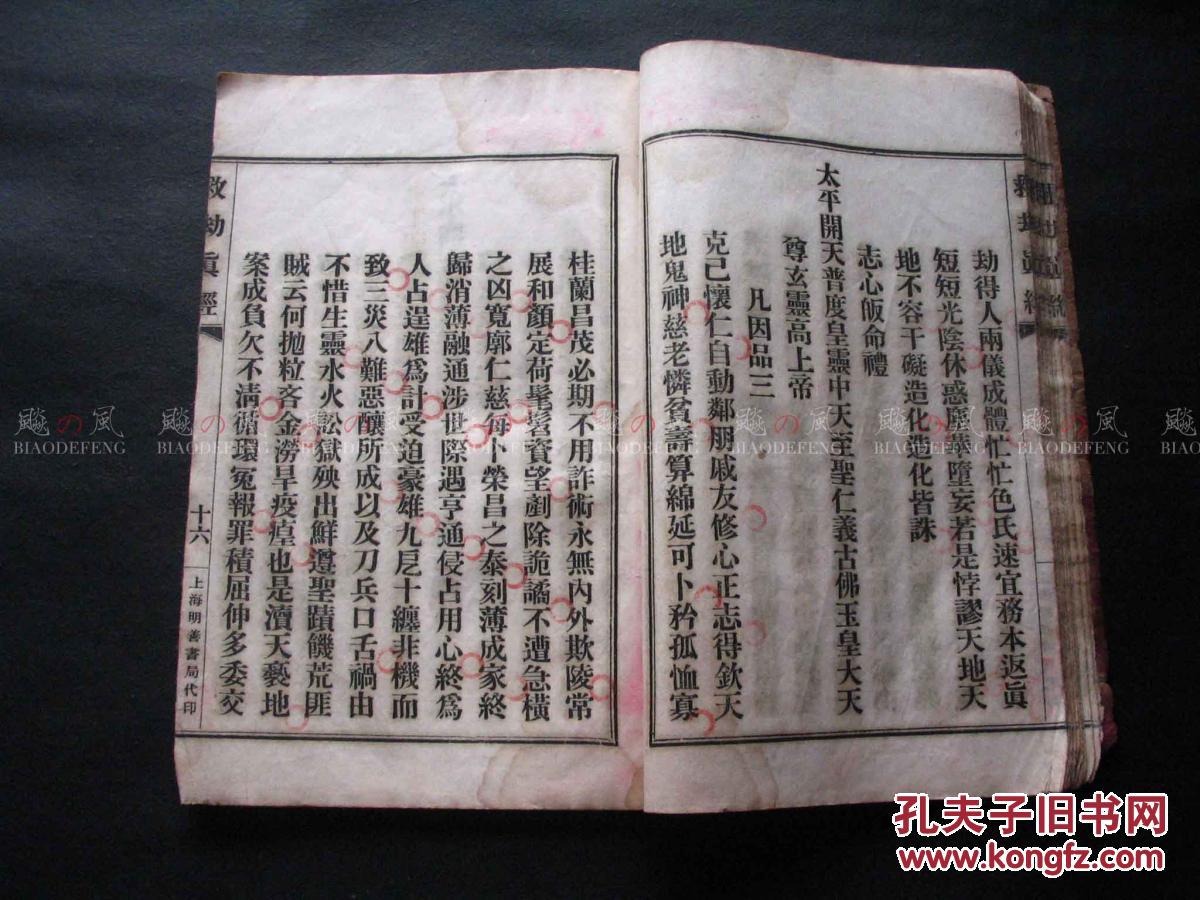 劫得人兩儀成體忙忙色氏速宜務本返眞
短短光陰休惑塵囂墮妄若是悖謬天地天
地不容干礙造化造化皆誅
志心皈命禮
太平開天普度皇靈中天至聖仁義古佛玉皇大天
尊玄靈高上帝
凡因品三
克己懷仁自動鄰朋戚友修心正志得欽天
地鬼神慈老憐貧壽算綿延可卜矜孤恤寡
桂蘭昌茂必期不用詐術永無內外欺陵常
展和顏定荷髦鬐資望劃除詭譎不遭急橫
之凶寬廓仁慈每卜榮昌之泰刻薄成家終
歸消薄融通涉世際遇亨通侵占用心終爲
人占逞雄爲計受迫豪雄九戹十纏非機而
致三災八難惡釀所成以及刀兵口舌禍由
不惜生靈水火訟獄殃出鮮遵聖蹟饑荒匪
賊云何拋粒吝金澇旱疫瘴也是瀆天褻地
案成負欠不淸循環冤報罪積屈伸多委交
救劫眞經
十六
上海明善書局代印
救劫眞經
飈の風
BIAODEFENG
飈の風
BIAODEFENG
飈の風
BIAODEFENG
飈の風
BIAODEFENG
飈の風
BIAODEFENG
飈の風
BIAODEFENG
飈の風
BIAODEFENG
孔夫子旧书网
www.kongfz.com